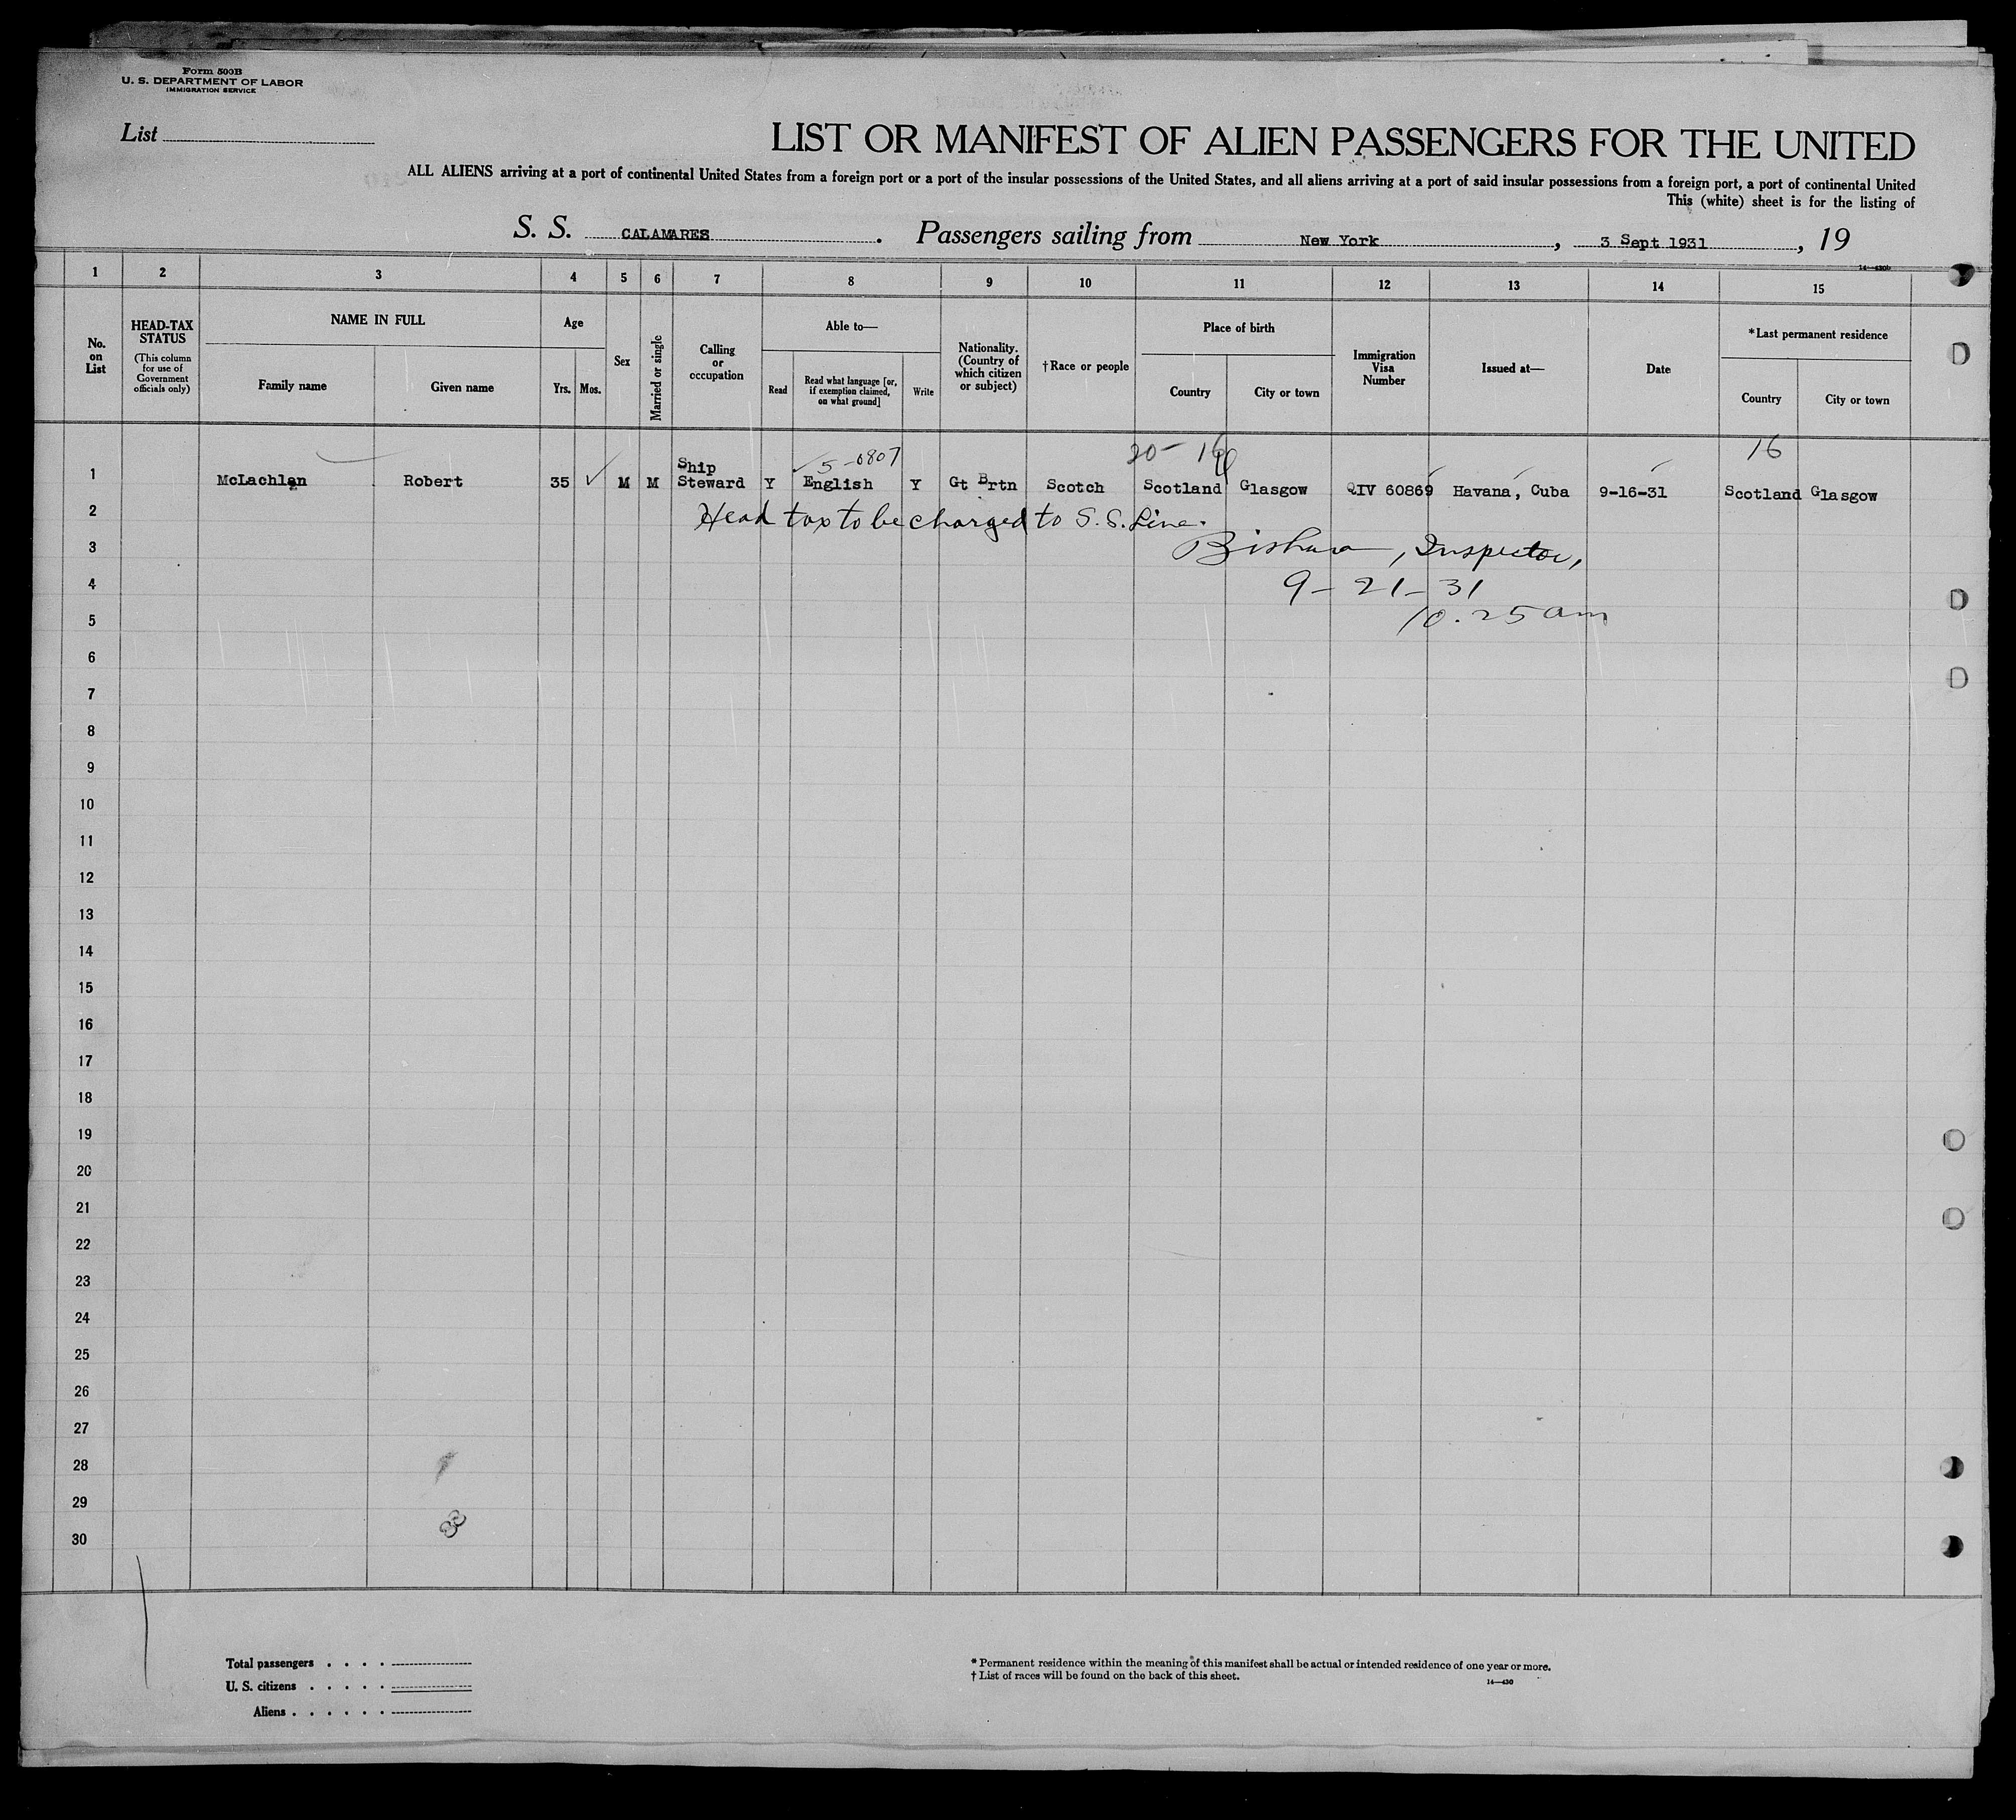 Form 500B
U. S. DEPARTMENT OF LABOR
IMMIGRATION SERVICE
List
LIST OR MANIFEST OF ALIEN PASSENGERS FOR THE UNITED
ALL ALIENS arriving at a port of continental United States from a foreign port or a port of the insular possessions of the United States, and all aliens arriving at a port of said insular possessions from a foreign port, a port of continental United
This (white) sheet is for the listing of
S. S. CALAMARES . Passengers sailing from New York , 3 Sept 1931 , 19
14—430b
1 2 3 4 5 6 7 8 9 10 11 12 13 14 15
No. on List
HEAD-TAX STATUS
(This column for use of Government officials only)
NAME IN FULL
Family name
Given name
Age
Yrs.
Mos.
Sex
Married or single
Calling or occupation
Able to—
Read
Read what language [or, if exemption claimed, on what ground]
Write
Nationality. (Country of which citizen or subject)
†Race or people
Place of birth
Country
City or town
Immigration Visa Number
Issued at—
Date
*Last permanent residence
Country
City or town
5-0807
20- 16
16
1 McLachlan Robert 35 M M Ship Steward Y English Y Gt Brtn Scotch Scotland Glasgow QIV 60869 Havana, Cuba 9-16-31 Scotland Glasgow
2 Head tax to be charged to S.S. Line.
3 Inspector,
4 9-21-31
5 10.25 am
6
7
8
9
10
11
12
13
14
15
16
17
18
19
20
21
22
23
24
25
26
27
28
29
30
Total passengers . . . .
U. S. citizens . . . . .
Aliens . . . . . .
* Permanent residence within the meaning of this manifest shall be actual or intended residence of one year or more.
† List of races will be found on the back of this sheet.
14—430